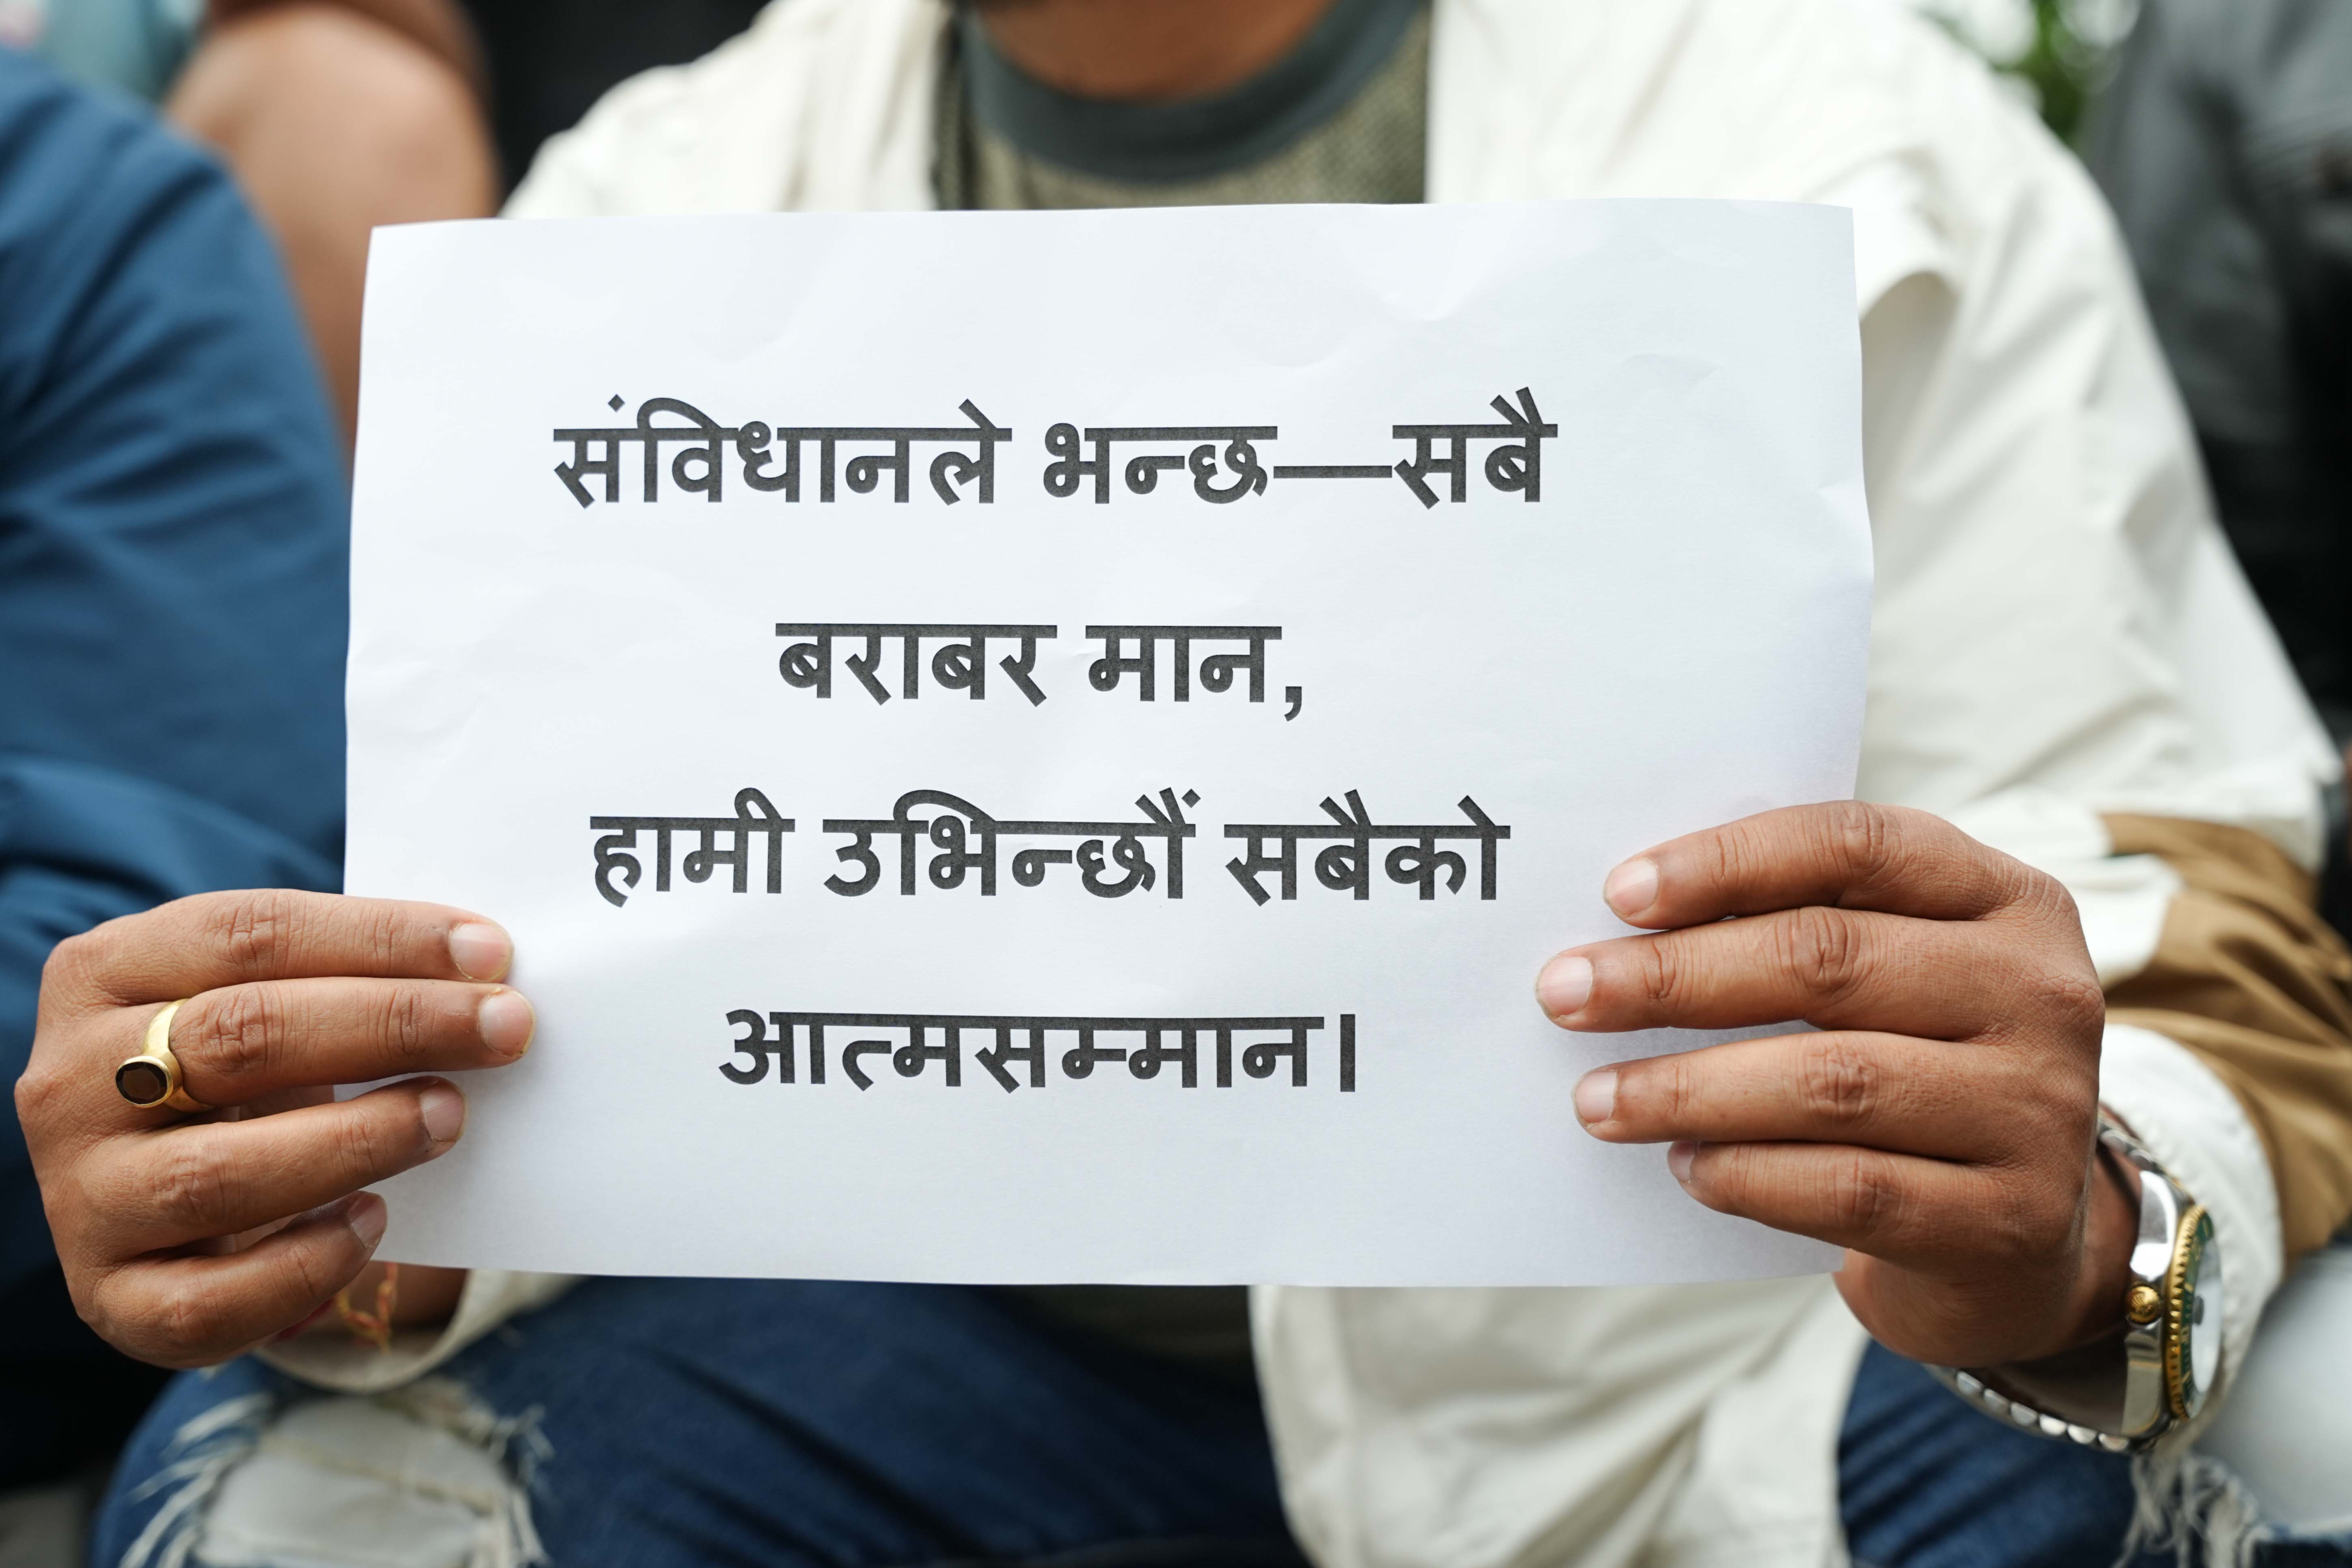 संविधानले भन्छ—सबै
बराबर मान,
हामी उभिन्छौं सबैको
आत्मसम्मान।